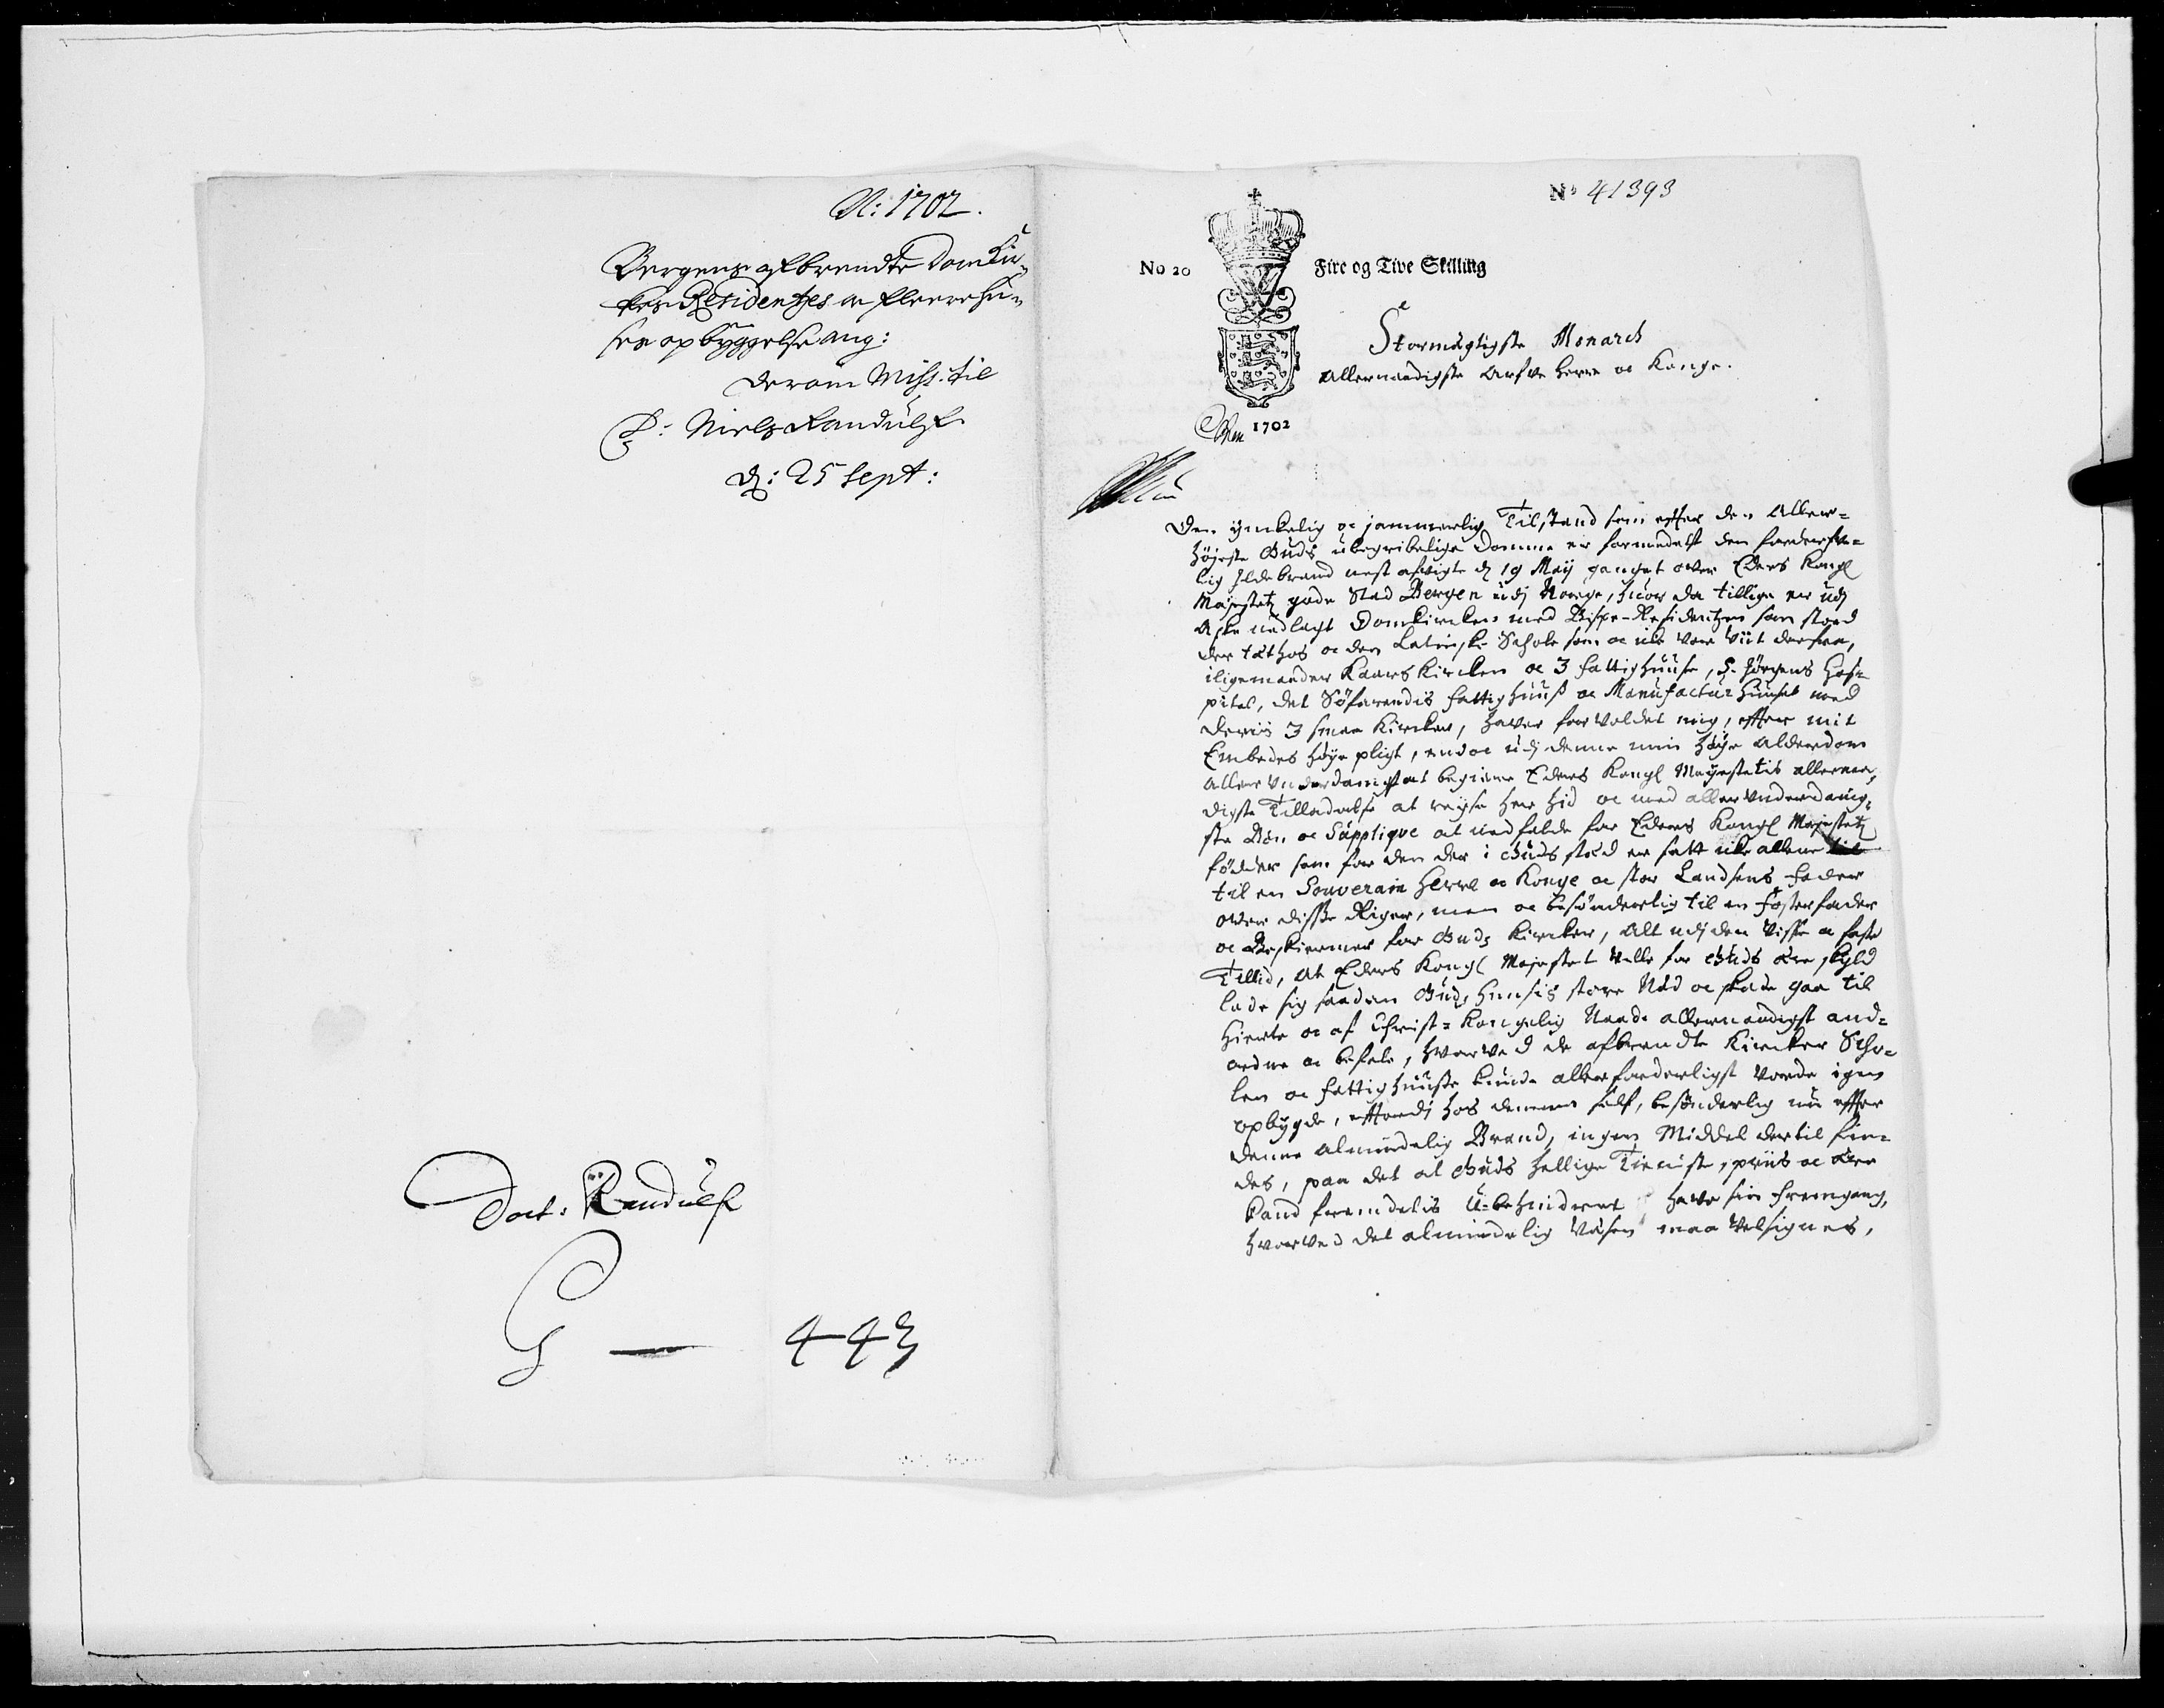 A: 1702.
Bergens afbrendte Dom Kir¬
kes Residentzes oc fleere hu¬
ses opbyggelse ang:
derom Miss: til
D: Niels Randulf
d: 25 Sept:
Doct: Randulf
G — 443
No 41393
No 20
Fire og Tive Skilling
Stormegtigste Monarch
Allernaadigste Arfve Herre oc Konge.
1702
Den ynkelig oc jammerlig Tilstand som effter den Aller=
høyeste Guds ubegribelige Domme er formedelst den forderfve=
lig Ildebrand nest afvigte d 19 Maij ganget over Eders Kongl
Majestetz gode Stad Bergen udj Norge, huor da tillige er udj
Aske nedlagt Domkircken med Bispe-Residentzen som stoed
der tæt hos oc den Latinske Schole som oc icke var viit derfra,
iligemaader Kaarskircken oc 3 fattighuuse, S. Jørgens Hos=
pital, det Søfarendis fattighuus oc Manufactur huuset med
deriis 3 smaa Kircker, haver forvoldet mig, effter mit
Embedes høye pligt, endoc udj denne min høye Alderdom
Allerunderdanigst at begiære Eders Kongl Mayestetis allernaa¬
digste Tilladelse at reyse her hid oc med allerunderdanig¬
ste Bøn oc Supplique at nedfalde for Eders Kongl Majestetz
fødder som for den der i Guds sted er satt icke allene
til en Souverain Herre oc Konge oc stor Landsens Fader
over disse Riger, men oc besønderlig til en Fosterfader
oc Beskiermer for Guds Kircker, Alt udj den visse oc faste
Tillid, At Eders Kongl Majestet ville for Guds ære skyld
lade sig saadan Guds Huusis store Nød oc skade gaa til
Hierte oc af Christ=Kongelig Naade allernaadigst and=
ordne oc befale, hvorved de afbrendte Kircker Scho=
len oc fattighuusse kunde allerforderligst vorde igen
opbygde, effterdj hos dennem self, besønderlig nu effter
denne almindelig Brand, ingen Middel dertil fin=
des, paa det at Guds hellige Tieniste, priis oc ære
kand fremdelis U=behindret have sin fremgang,
hvorved det almindelig Væsen maa velsignes,